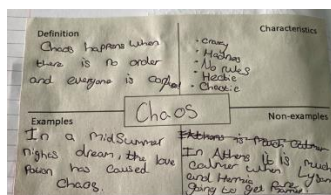 Definition
Chaos happens when
there is no order
and everyone is
Characteristics
• Crazy
• Madness
• No rules
• Hectic
• Chaotic
Chaos
Examples
In a Midsummer
nighs dream, the love
Potion has caused
Chaos.
Non-examples
In Athens it is much
calmer when
and Hermia
going to get